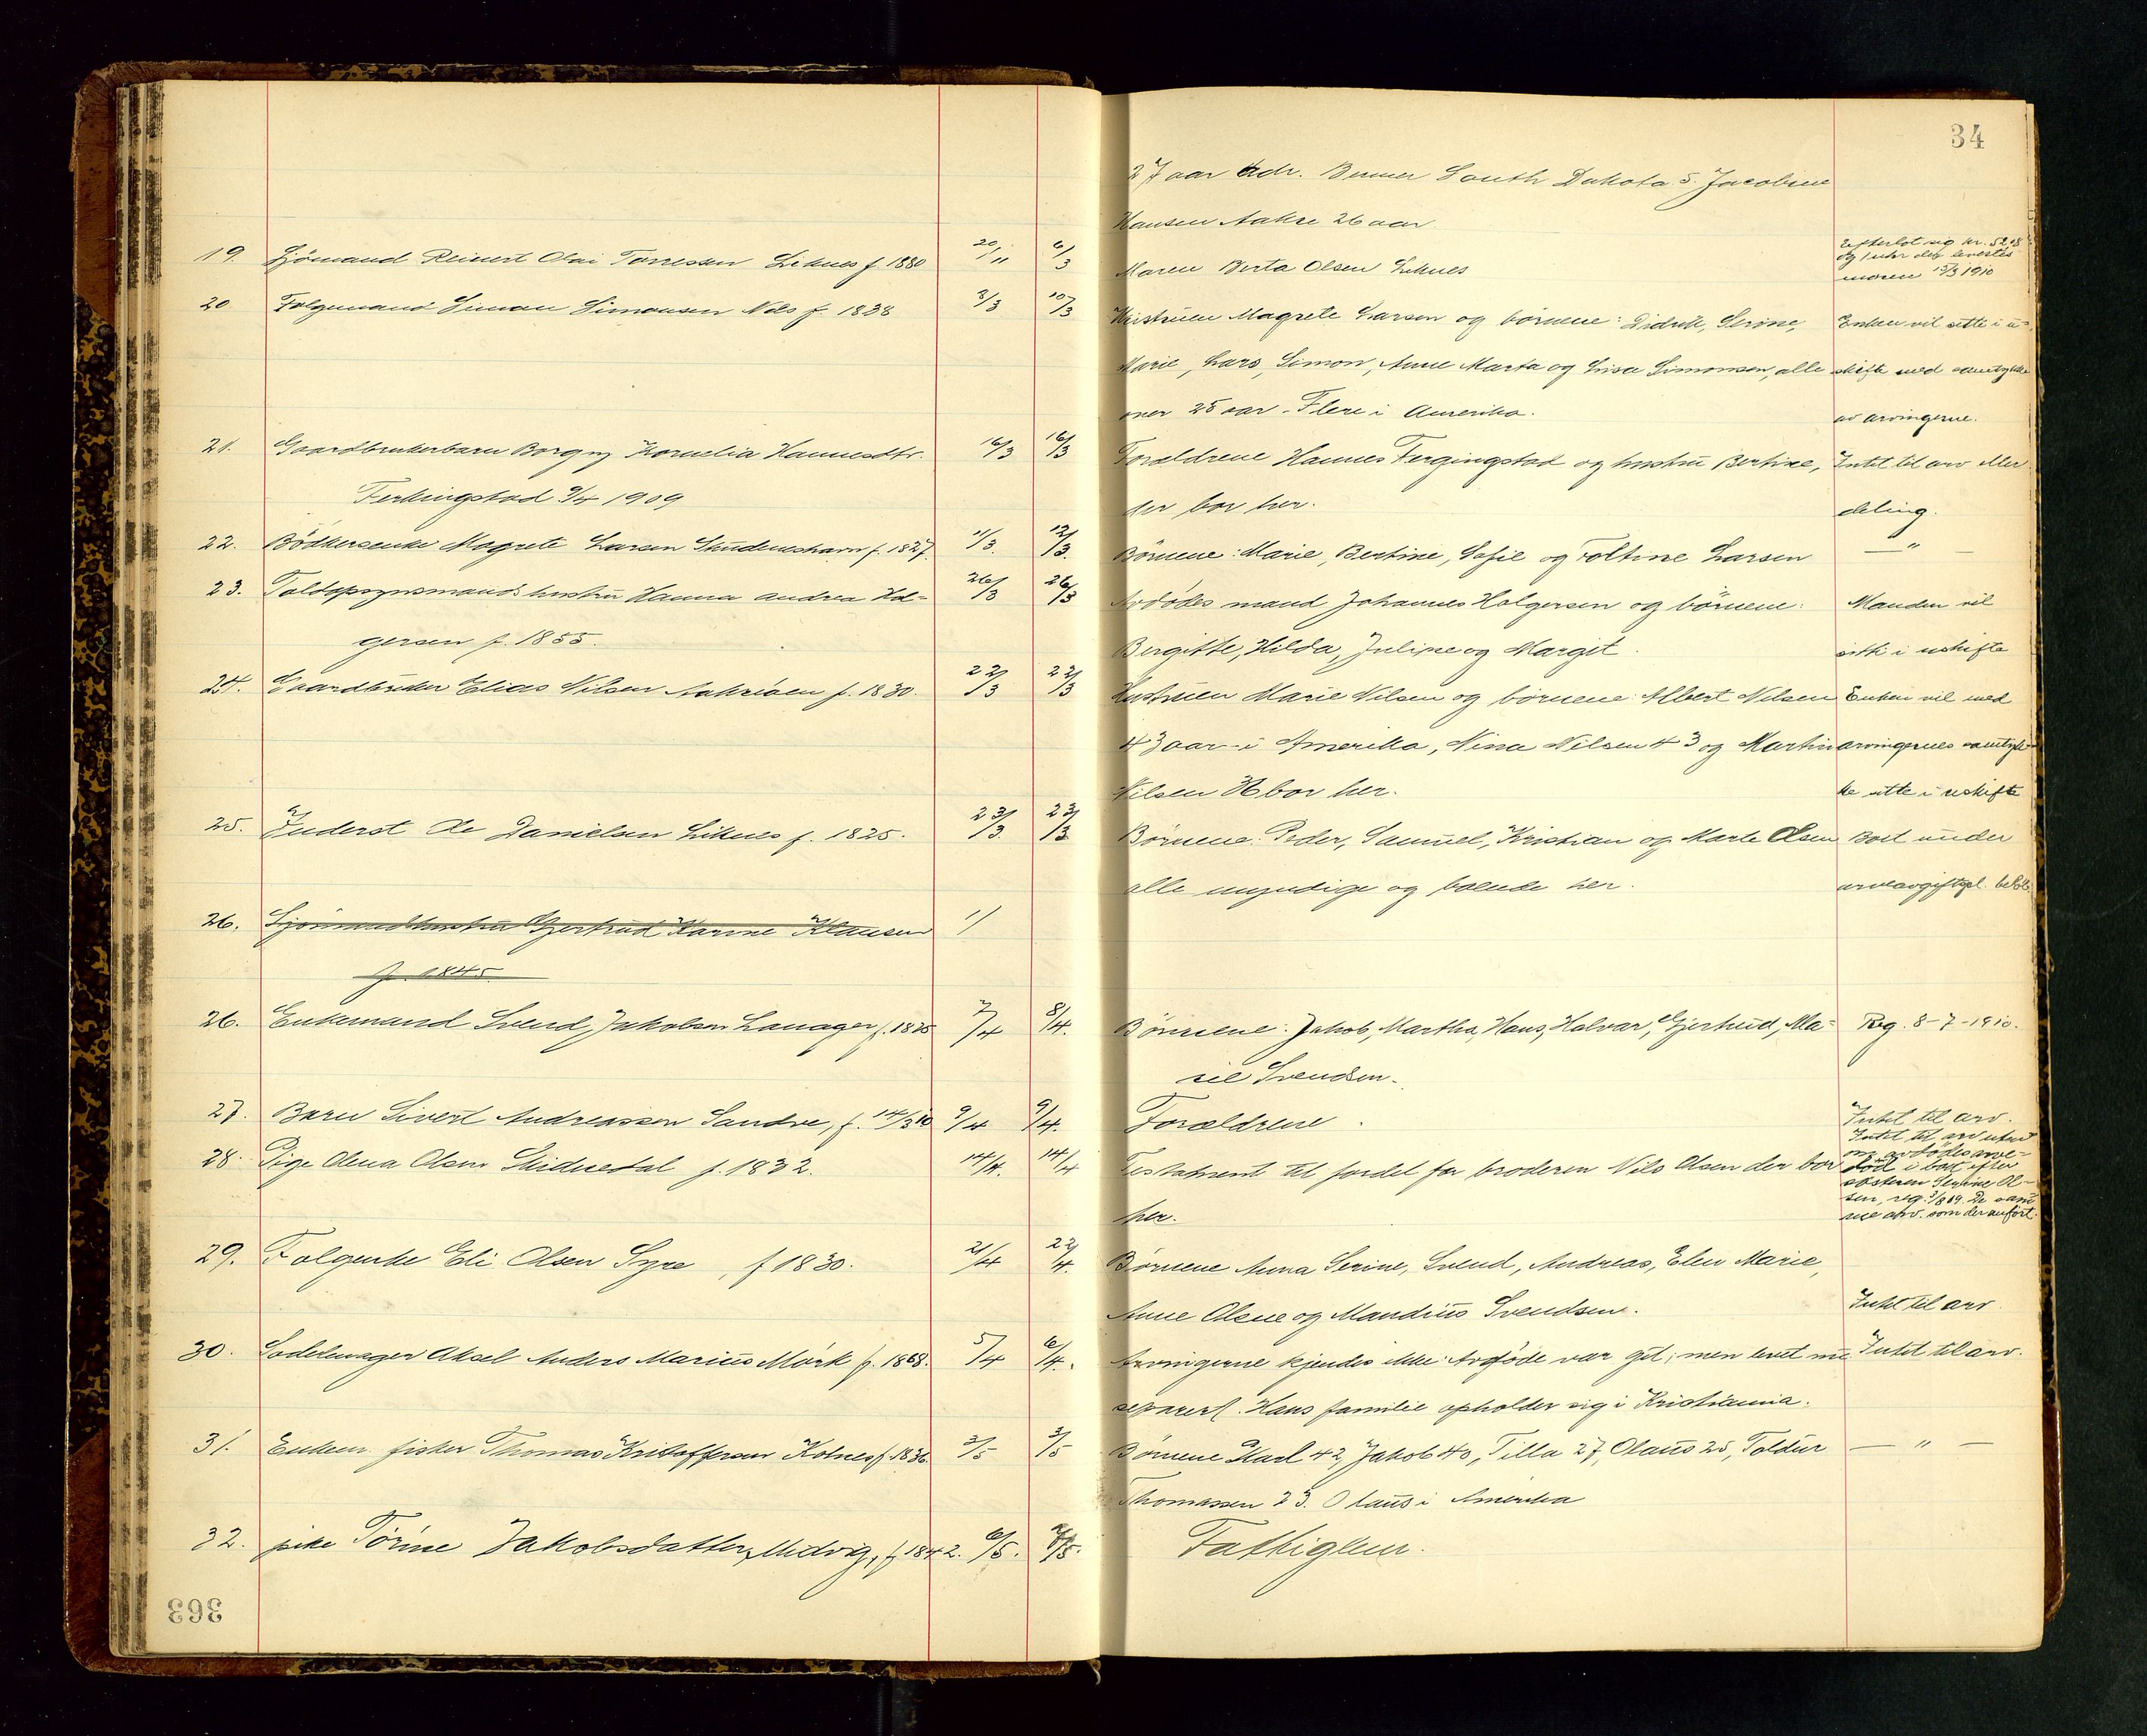 34
27 aar adr. South Dakota 5. Jacobine
Hansen Aakre 26 aar
19. Sjömand Reinert Olai Torressen Liknes f. 1880 20/11 6/3 Maren Berta Olsen Liknes
Efterlot sig kr. 52,08
og 1 uhr der levertes
moren 15/3 1910
20. Folgemand Simon Simonsen Nes f. 1838 8/3 10/3 Hustruen Magrete Larsen og börnene: Didrik, Serine, Enken vil sitte i u-
Marie, Lars, Simon, Anne Marta og Lisa Simonsen, alle skifte med samtykke
over 25 aar. Flere i Amerika. av arvingerne.
21. Gaardbrukerbarn Borgny Kornelia Hannesdtr. 16/3 16/3 Forældrene Hannes Fergingstad og hustru Bertine, Intet til arv eller
Ferkingstad 9/4 1909 der bor her. deling.
22. Bödkerenke Magrete Larsen Skudeneshavn f. 1827. 11/3. 12/3. Börnene: Marie, Bertine, Sofie og Toltine Larsen — " —
23. Toldopsynsmands hustru Hanna Andrea Hol- 26/3 26/3 Avdödes mand Johannes Holgersen og börnene: Manden vil
gersen f. 1855. Birgitte, Hilda, Juline og Margit. sitte i uskifte
24. Gaardbruker Elias Nilsen Aakrøen f. 1830. 22/3 22/3 Hustruen Marie Nilsen og börnene: Albert Nilsen Enken vil med
43 aar i Amerika, Nina Nilsen 43 og Martin arvingernes samtyk-
Nilsen bor her. ke sitte i uskifte
25. Inderst Ole Danielsen Liknes f. 1825. 23/3. 23/3 Börnene: Peder, Samuel, Kristian og Marte Olsen Boet under
alle myndige og boende her. arveavgiftspl. beløb.
26. Sjömandshustru Gjertrud Karine Klausen 1/
f. 1845
26. Enkemand Svend Jakobsen Lanager f. 1825 7/4 8/4. Börnene: Jakob, Martha, Hans, Halvar, Gjertrud, Ma- Reg. 8-7-1910.
rie Svendsen.
27. Barn Sivert Andreassen Sandve, f. 14/3 10 9/4 9/4. Forældrene. Intet til arv.
28. Pige Olena Olsen Skidnedal f. 1832. 14/4. 14/4 Testament til fordel for broderen Nils Olsen der bor
her.
Intet til arv uten
om avdödes arve-
lod i boet efter
søsteren Serine Ol-
sen, reg. 3/8 09. De sam-
me arv. som der anført.
29. Folgenke Eli Olsen Syre, f 1830. 21/4 22/4. Börnene Anna Serine, Svend, Andreas, Elen Marie,
Anne Olene og Mandius Svendsen. Intet til arv
30. Aksel Anders Marius Mørk f. 1868. 5/4 6/4. Arvingerne kjendes ikke. Avdöde var gift, men levet Intet til arv.
separert. Hans familie opholder sig i Kristiania.
31. Enkem. fisker Thomas Kristoffersen Kolnes f. 1836. 3/5 3/5 Börnene Karl 42, Jakob 40, Tilla 27, Olaus 25, — " —
Thomassen 23. Olaus i Amerika
32. pike Törine Jakobsdatter, Midvig, f 1842. 6/5. 7/5. Fattiglem.
363